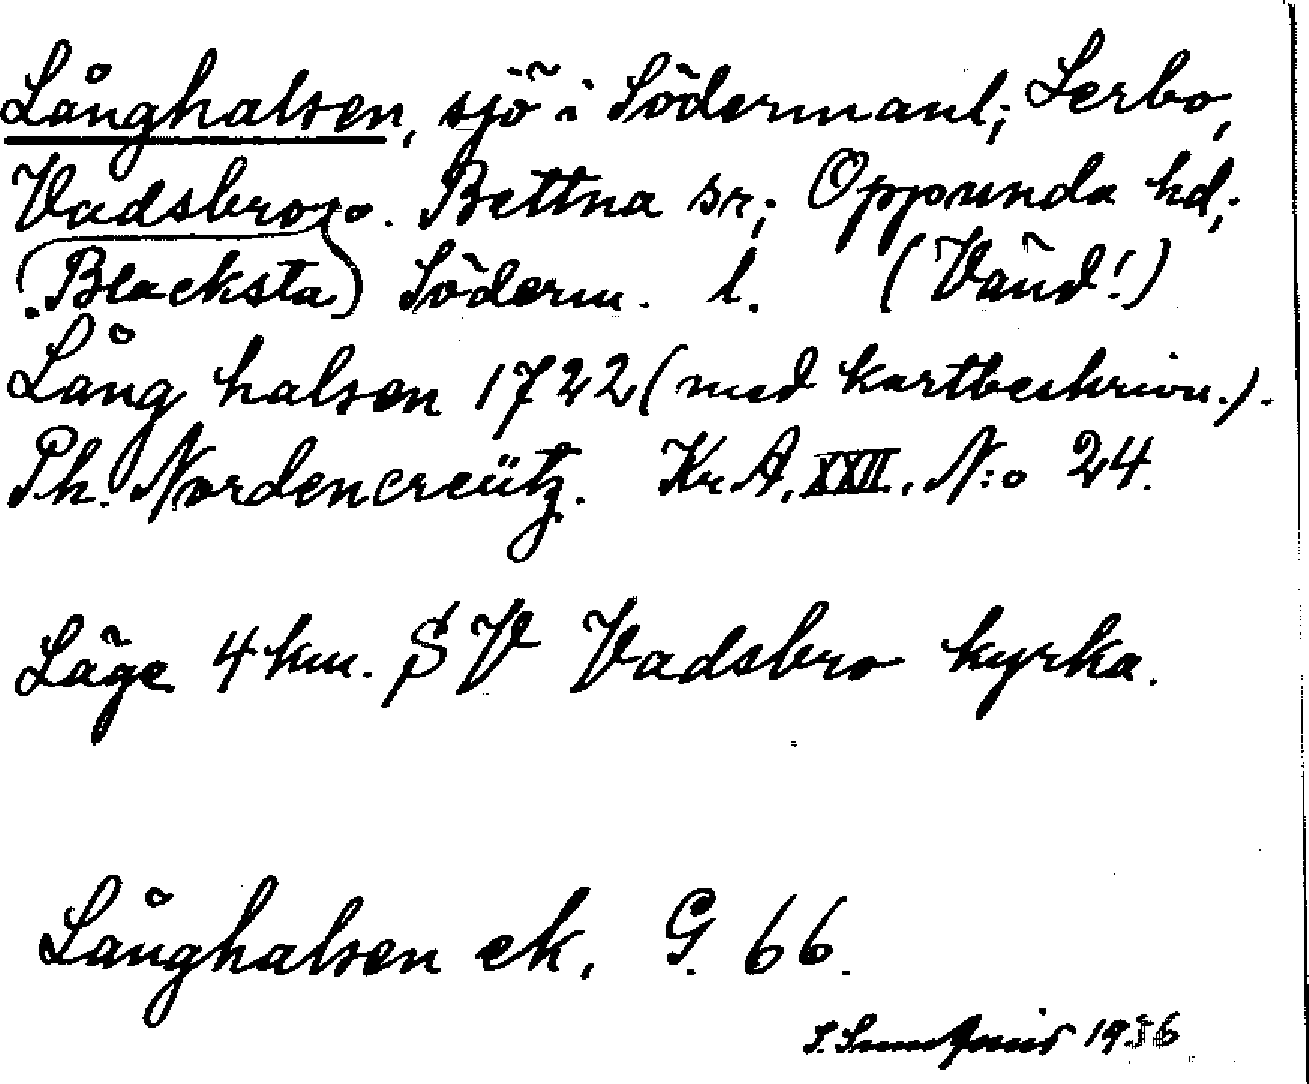 Långhalsen, sjö i Södermanl; Lerbo,
Vadsbro, o. Bettna sr; Oppunda hd;
(Blacksta) Söderm. l. (Vänd!)
Lång halsen 1722 (med kartbeskrivn.).
Ph. Nordencreütz. Kr. A. XXII. N:o 24.
Läge 4 km. SV Vadsbro kyrka.
Långhalsen ek. G. 66.
1936